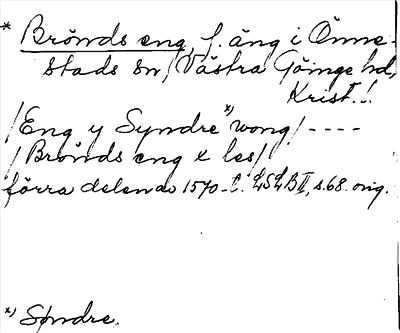 * Brönds eng, f. äng i Önne-
stads sn, Västra Göinge hd,
Krist. l.
/Eng y Syndre *) wong/ ----
/Brönds eng x les/
förra delen av 1570-t. LSLB II, s. 68. orig.
*) Søndre.